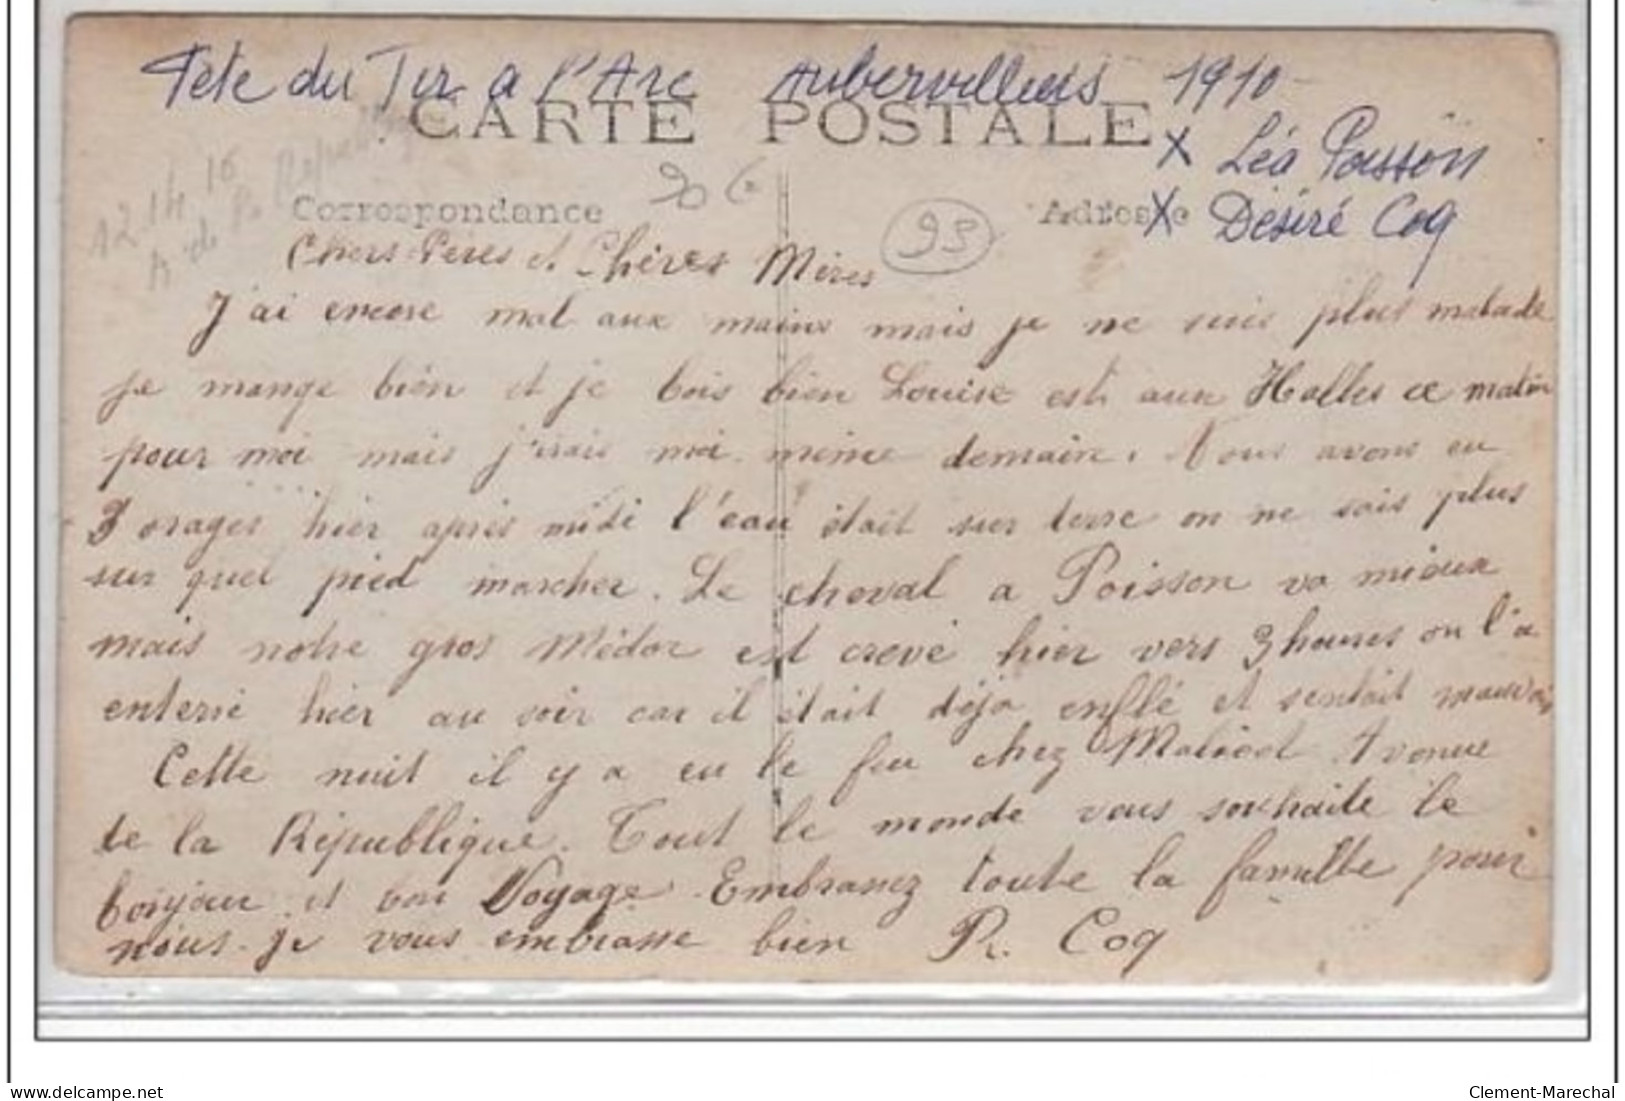 Fête du Tir a l'Arc Aubervilliers 1910
CARTE POSTALE
X Léa Poisson
20 €
Correspondance
93
Adresse
X Désiré Coq
Chers Pères et Chères Mères
J'ai encore mal aux mains mais je ne suis plus malade
je mange bien et je bois bien Louise est aux Halles ce matin
pour moi mais j'irais moi même demain. Nous avons eu
3 orages hier après midi l'eau était sur terre on ne sais plus
sur quel pied marcher. Le cheval a Poisson va mieux
mais notre gros Médor est crevé hier vers 3 heures on l'a
enterré hier au soir car il était déja enflé et sentait mauvais
Cette nuit il y a eu le feu chez Malicet Avenue
de la République. Tout le monde vous souhaite le
bonjour et bon Voyage. Embrassez toute la famille pour
nous. je vous embrasse bien R. Coq
Clement-Marechal
www.delcampe.net